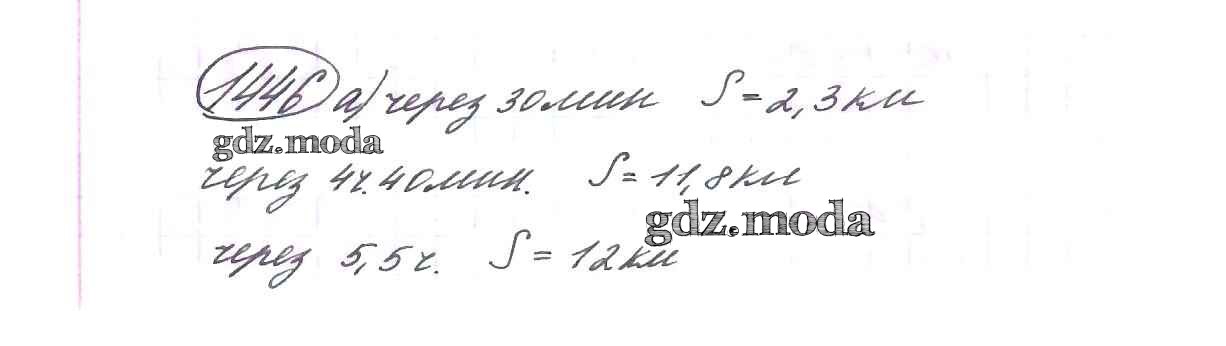 1446 а) через 30 мин S = 2,3 км
gdz.moda
через 4ч. 40 мин. S = 11,8 км
gdz.moda
через 5,5 ч. S = 12 км